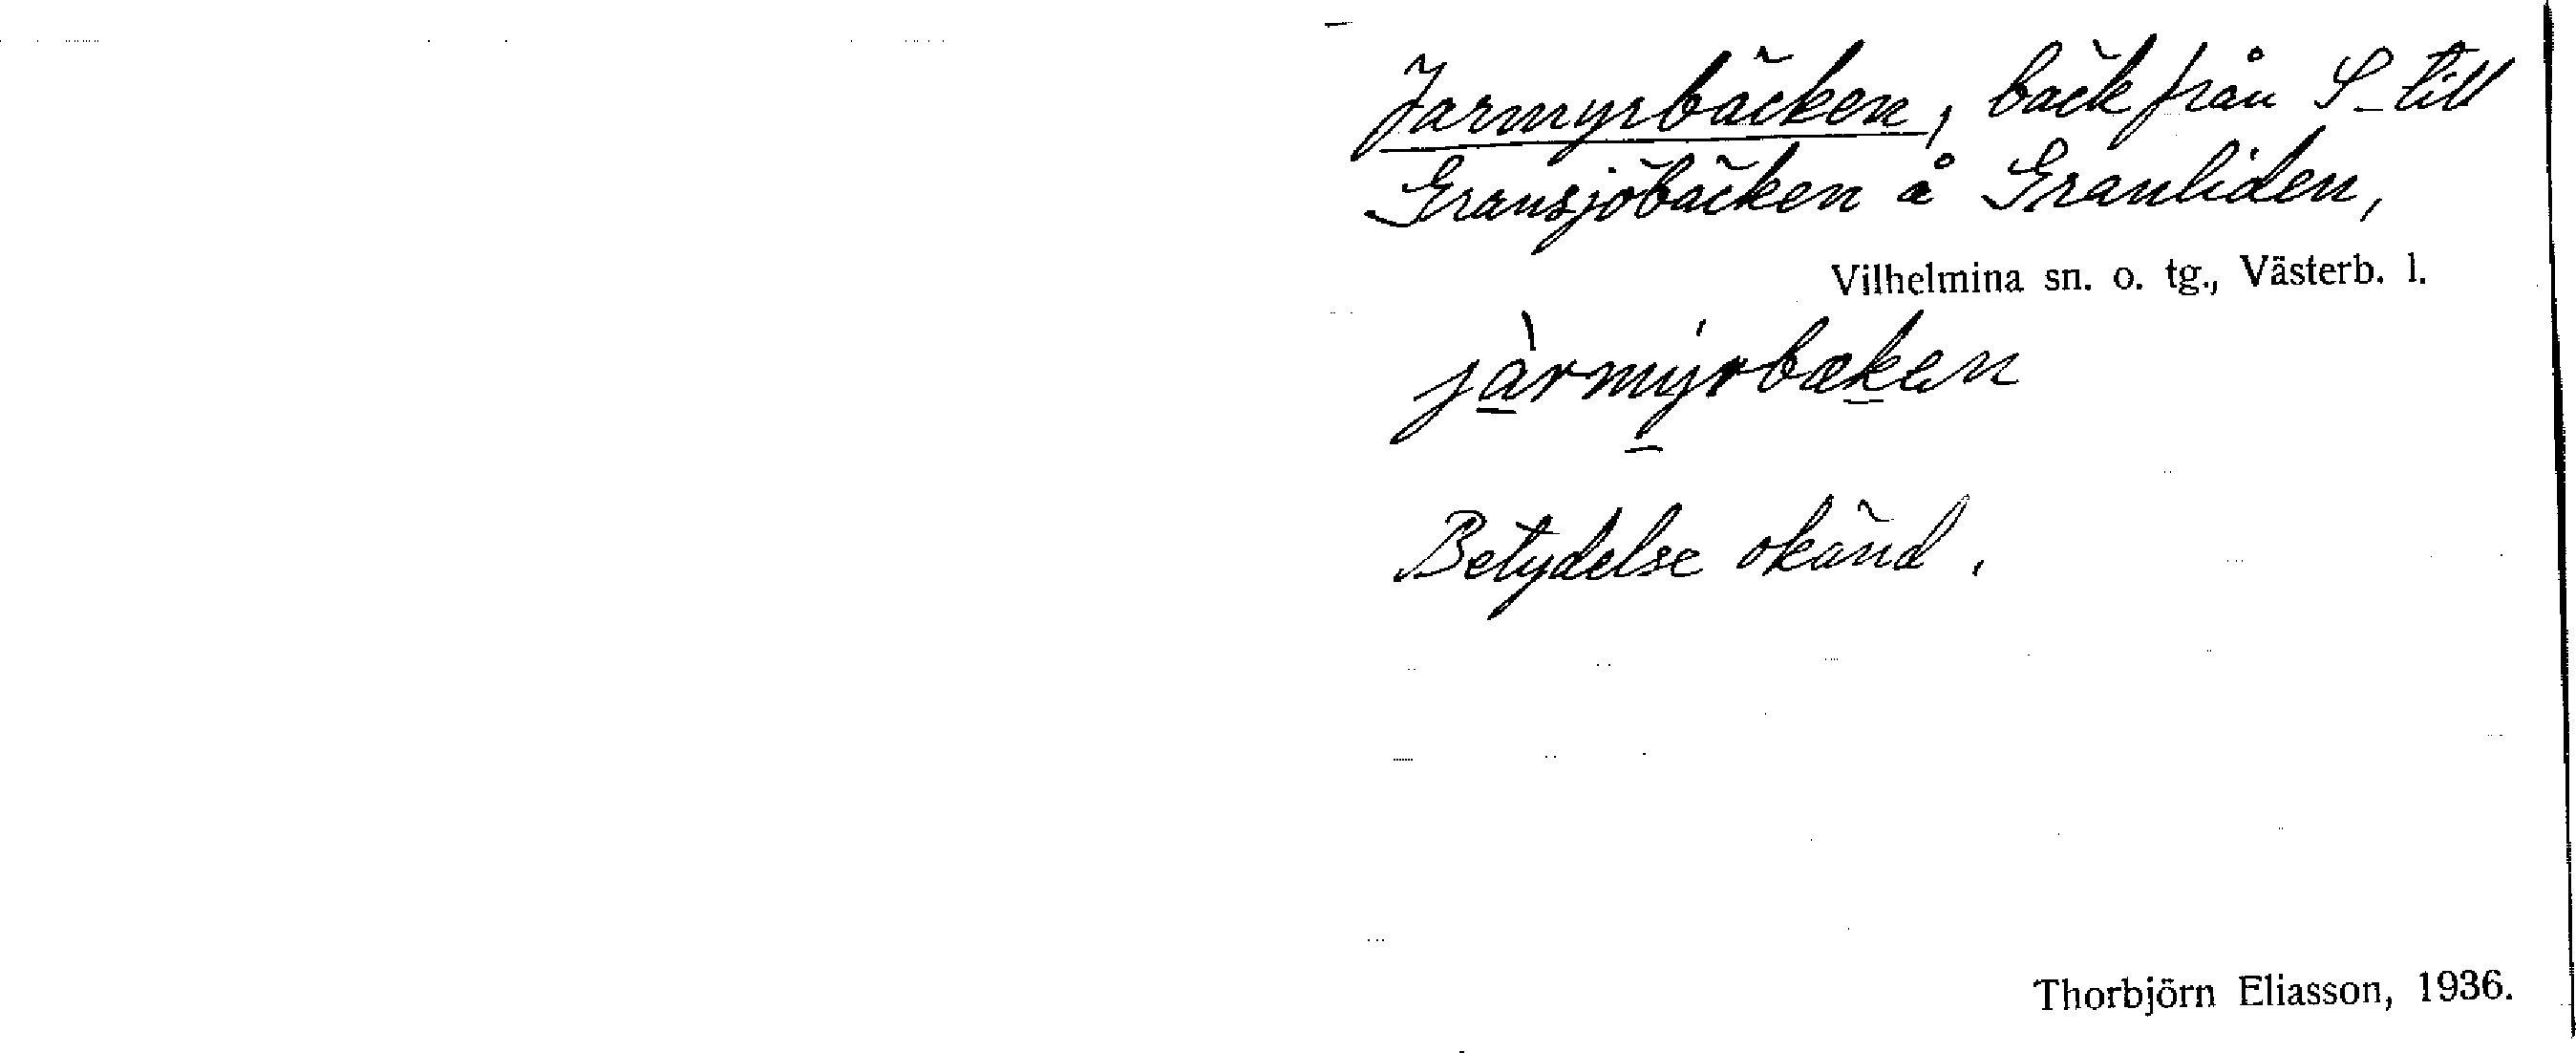 Jarmyrbäcken, bäck från S. till
Gransjöbäcken å Granliden,
Vilhelmina sn. o. tg., Västerb. l.
jàrmýrbækæn
Betydelse okänd.
Thorbjörn Eliasson, 1936.